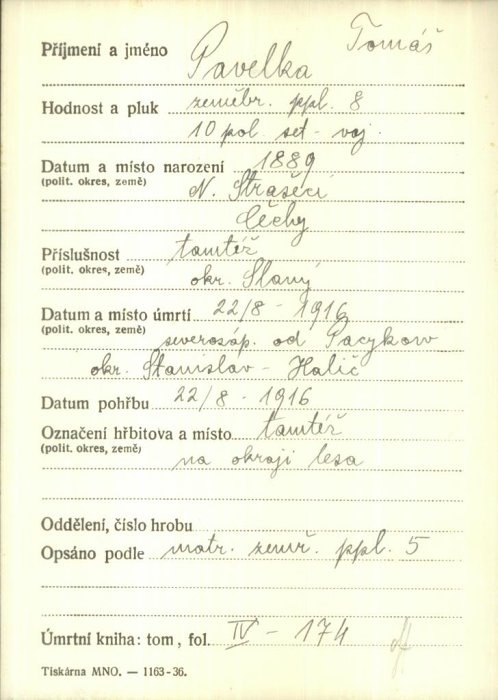 Příjmení a jméno Pavelka Tomáš
Hodnost a pluk zeměbr. ppl. 8
10 pol. set - voj.
Datum a místo narození 1889
(polit. okres, země) N. Strašecí
Čechy
Příslušnost tamtéž
(polit. okres, země) okr. Slaný
Datum a místo úmrtí 22/8 - 1916
(polit. okres, země) severozáp. od Pacykow
okr. Stanislav - Halič
Datum pohřbu 22/8 - 1916
Označení hřbitova a místo tamtéž
(polit. okres, země) na okraji lesa
Oddělení, číslo hrobu
Opsáno podle matr. zemř. ppl. 5
Úmrtní kniha: tom, fol. IV - 174
Tiskárna MNO. — 1163-36.